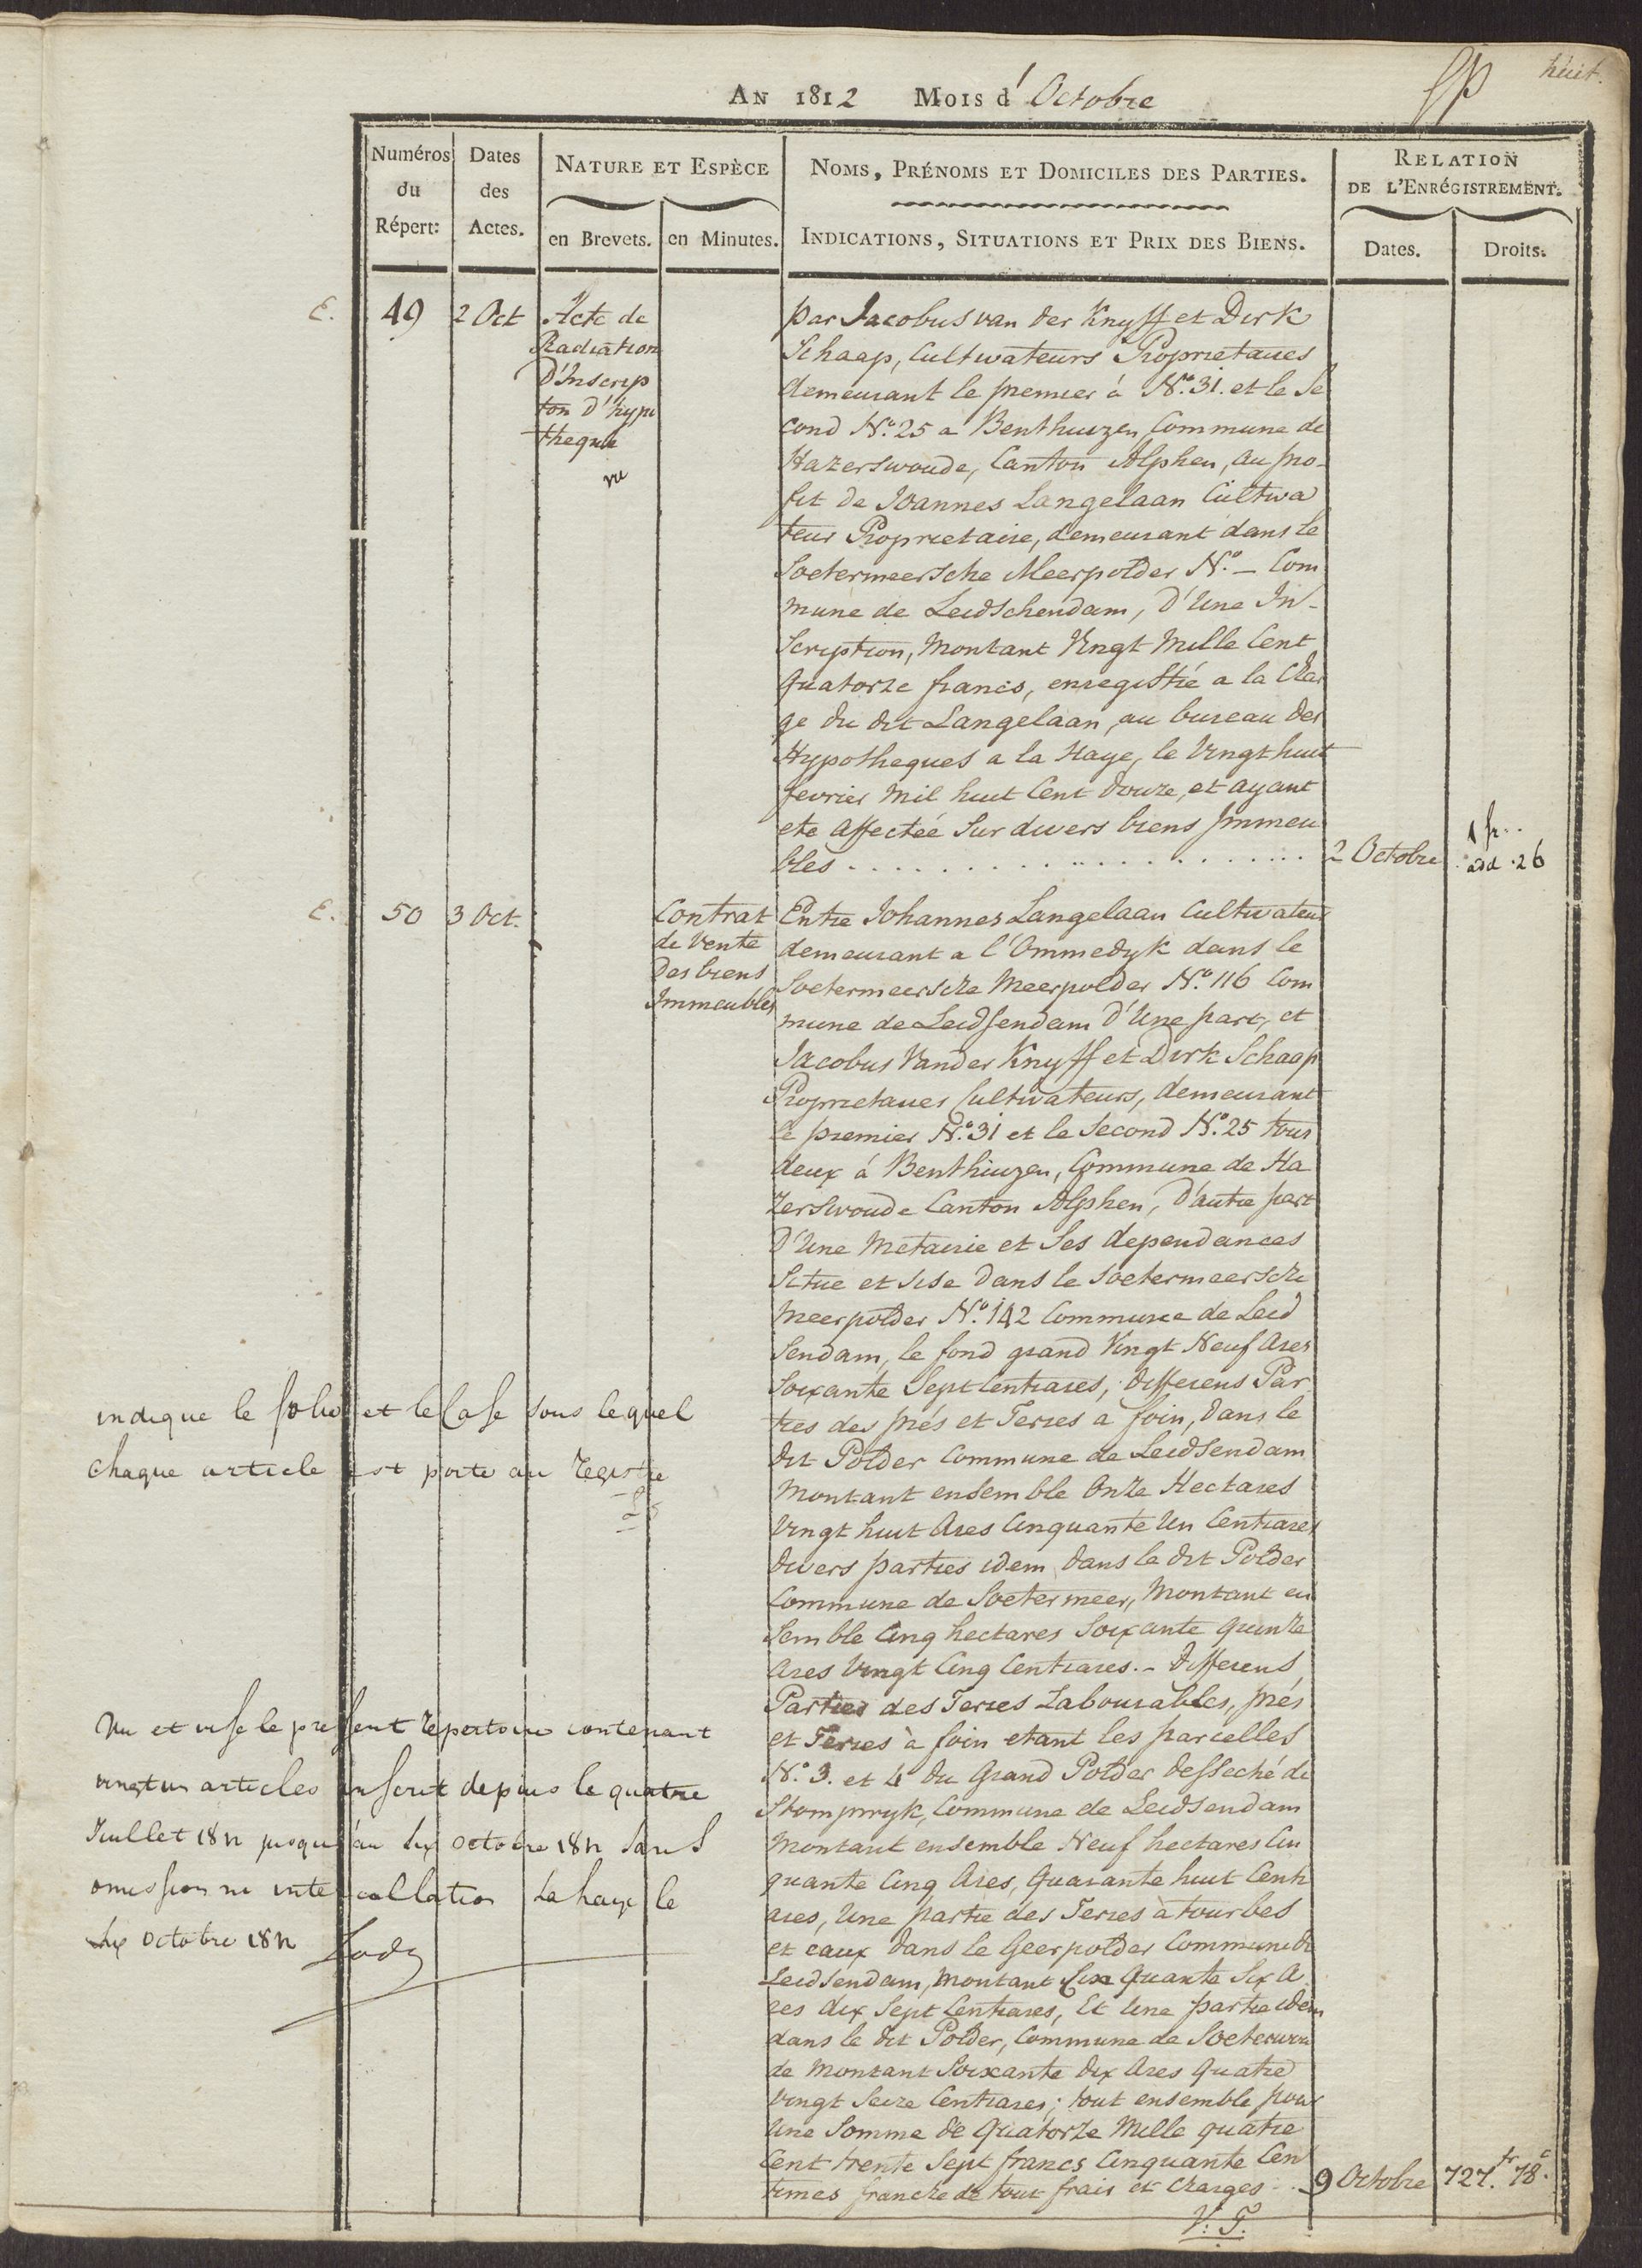 huit.
AN 1812 MOIS d'Octobre
Numéros du Répert:
Dates des Actes.
NATURE ET ESPÈCE
en Brevets. en Minutes.
NOMS, PRÉNOMS ET DOMICILES DES PARTIES.
INDICATIONS, SITUATIONS ET PRIX DES BIENS.
RELATION
DE L'ENRéGISTREMENT.
Dates. Droits.
E. 49 2 Oct
Acte de
Radiation
D'Inscrip
tion d'hypo
theque
par Jacobus van der Knyff et Dirk
Schaap, Cultivateurs Proprietaires
demeurant le premier à No. 31. et le Se
cond No. 25 a Benthuizen Commune de
Hazerswoude, Canton Alphen, au pro-
fit de Joannes Langelaan Cultiva
teur Proprietaire, demeurant dans le
Soetermeersche Meerpolder No. — Com
mune de Leidschendam, D'Une In-
scription, montant Vingt Mille Cent
Quatorze francs, enregistré a la Char
ge du dit Langelaan, au bureau des
Hypotheques a la Haye, le Vingt huit
fevrier Mil huit Cent Douze, et ayant
ete affectée Sur divers biens Immeu
bles . . . . . . . . . . . . . . . . . . . . 2 Octobre 1 fr..
add . 26
E. 50 3 Oct.
Contrat
de Vente
Des biens
Immeubles
Entre Johannes Langelaan Cultivateur
demeurant a l'Ommedyk dans le
Soetermeersche Meerpolder No. 116 Com
mune de Leidsendam D'Une part, et
Jacobus Vander Knyff et Dirk Schaap
Proprietaires Cultivateurs, demeurant
le premier No. 31 et le Second No. 25 tous
deux á Benthuizen, Commune de Ha
zerswoude Canton Alphen, D'autre part
D'Une Metairie et Ses dependances
Situe et Sise Dans le Soetermeersche
Meerpolder No. 142 Commune de Leid
sendam, le fond grand Vingt Neuf Ares
Soixante Sept Centiares, Differens Par
ties des prés et Terres a foin, Dans le
dit Polder Commune de Leidsendam
montant ensemble Onze Hectares
Vingt huit Ares Cinquante Un Centiares
Divers parties idem dans le dit Polder
Commune de Soetermeer, montant en
semble Cinq hectares Soixante quinze
Ares Vingt Cinq Centiares. - Differens
Parties des Terres Labourables, prés
et Terres à foin etant les parcelles
No. 3. et 4 du Grand Polder Desseché de
Stompwyk, Commune de Leidsendam
montant ensemble Neuf hectares Cin
quante Cinq Ares, Quarante huit Centi
ares, Une partie des Terres à tourbes
et eaux Dans le Geerpolder Commune de
Leidsendam, montant Cinquante Six A
res dix Sept Centiares, Et Une partie idem
dans le dit Polder, Commune de Soeterwou
de Montant Soixante Dix Ares Quatre
Vingt Seize Centiares; tout ensemble pour
Une Somme de Quatorze Mille quatre
Cent trente Sept francs Cinquante Cen
times franche de tout frais et Charges . . 9 Octobre 727. fr 78 c.
V. T.
indique le folio et le Case sous lequel
chaque article est porte au registre
Vu et visé le present repertoire contenant
vingt un articles inscrit depuis le quatre
Juillet 1812 jusqu'au dix octobre 1812 Sans
omission ni intercallation La haye le
dix octobre 1812